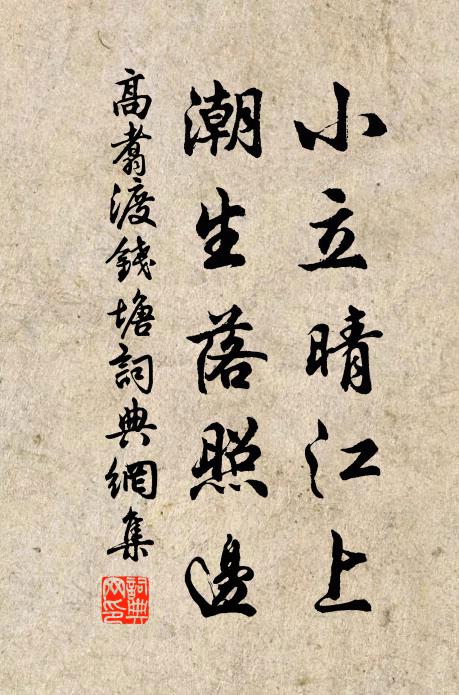 小立晴江上
潮生落照邊
高翥渡錢塘詞典網集
詞典網印